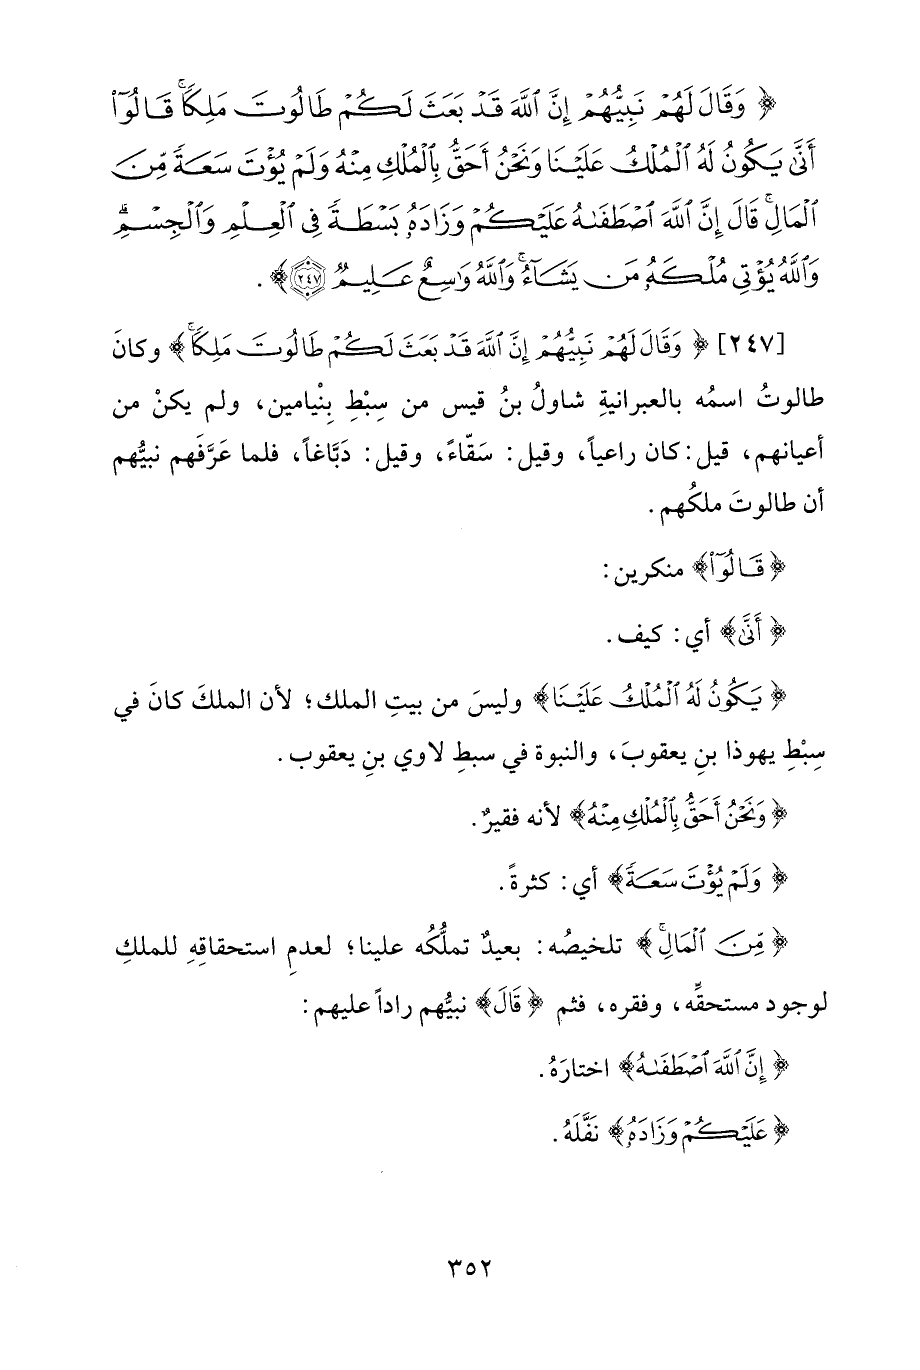 ﴿ وَقَالَ لَهُمْ نَبِيُّهُمْ إِنَّ ٱللَّهَ قَدْ بَعَثَ لَكُمْ طَالُوتَ مَلِكًا ۚ قَالُوٓا۟
أَنَّىٰ يَكُونُ لَهُ ٱلْمُلْكُ عَلَيْنَا وَنَحْنُ أَحَقُّ بِٱلْمُلْكِ مِنْهُ وَلَمْ يُؤْتَ سَعَةً مِّنَ
ٱلْمَالِ ۚ قَالَ إِنَّ ٱللَّهَ ٱصْطَفَىٰهُ عَلَيْكُمْ وَزَادَهُۥ بَسْطَةً فِى ٱلْعِلْمِ وَٱلْجِسْمِ ۖ
وَٱللَّهُ يُؤْتِى مُلْكَهُۥ مَن يَشَآءُ ۚ وَٱللَّهُ وَٰسِعٌ عَلِيمٌ ٢٤٧ ﴾ .
[٢٤٧] ﴿ وَقَالَ لَهُمْ نَبِيُّهُمْ إِنَّ ٱللَّهَ قَدْ بَعَثَ لَكُمْ طَالُوتَ مَلِكًا ۚ ﴾ وكانَ
طالوتُ اسمُه بالعبرانيةِ شاولُ بنُ قيس من سِبْطِ بِنْيامين، ولم يكنْ من
أعيانهم، قيل: كان راعياً، وقيل: سَقّاءً، وقيل: دَبَّاغاً، فلما عَرَّفَهم نبيُّهم
أن طالوتَ ملكُهم.
﴿ قَالُوٓا۟ ﴾ منكرين:
﴿ أَنَّىٰ ﴾ أي: كيف.
﴿ يَكُونُ لَهُ ٱلْمُلْكُ عَلَيْنَا ﴾ وليسَ من بيتِ الملك؛ لأن الملكَ كانَ في
سِبْطِ يهوذا بنِ يعقوبَ، والنبوة في سبطِ لاوي بنِ يعقوب.
﴿ وَنَحْنُ أَحَقُّ بِٱلْمُلْكِ مِنْهُ ﴾ لأنه فقيرٌ.
﴿ وَلَمْ يُؤْتَ سَعَةً ﴾ أي: كثرةً.
﴿ مِّنَ ٱلْمَالِ ۚ ﴾ تلخيصُه: بعيدٌ تملُّكُه علينا؛ لعدمِ استحقاقِهِ للملكِ
لوجود مستحقِّه، وفقره، فثم ﴿ قَالَ ﴾ نبيُّهم راداً عليهم:
﴿ إِنَّ ٱللَّهَ ٱصْطَفَىٰهُ ﴾ اختارَهُ.
﴿ عَلَيْكُمْ وَزَادَهُۥ ﴾ نَفَّلَهُ.
٣٥٢